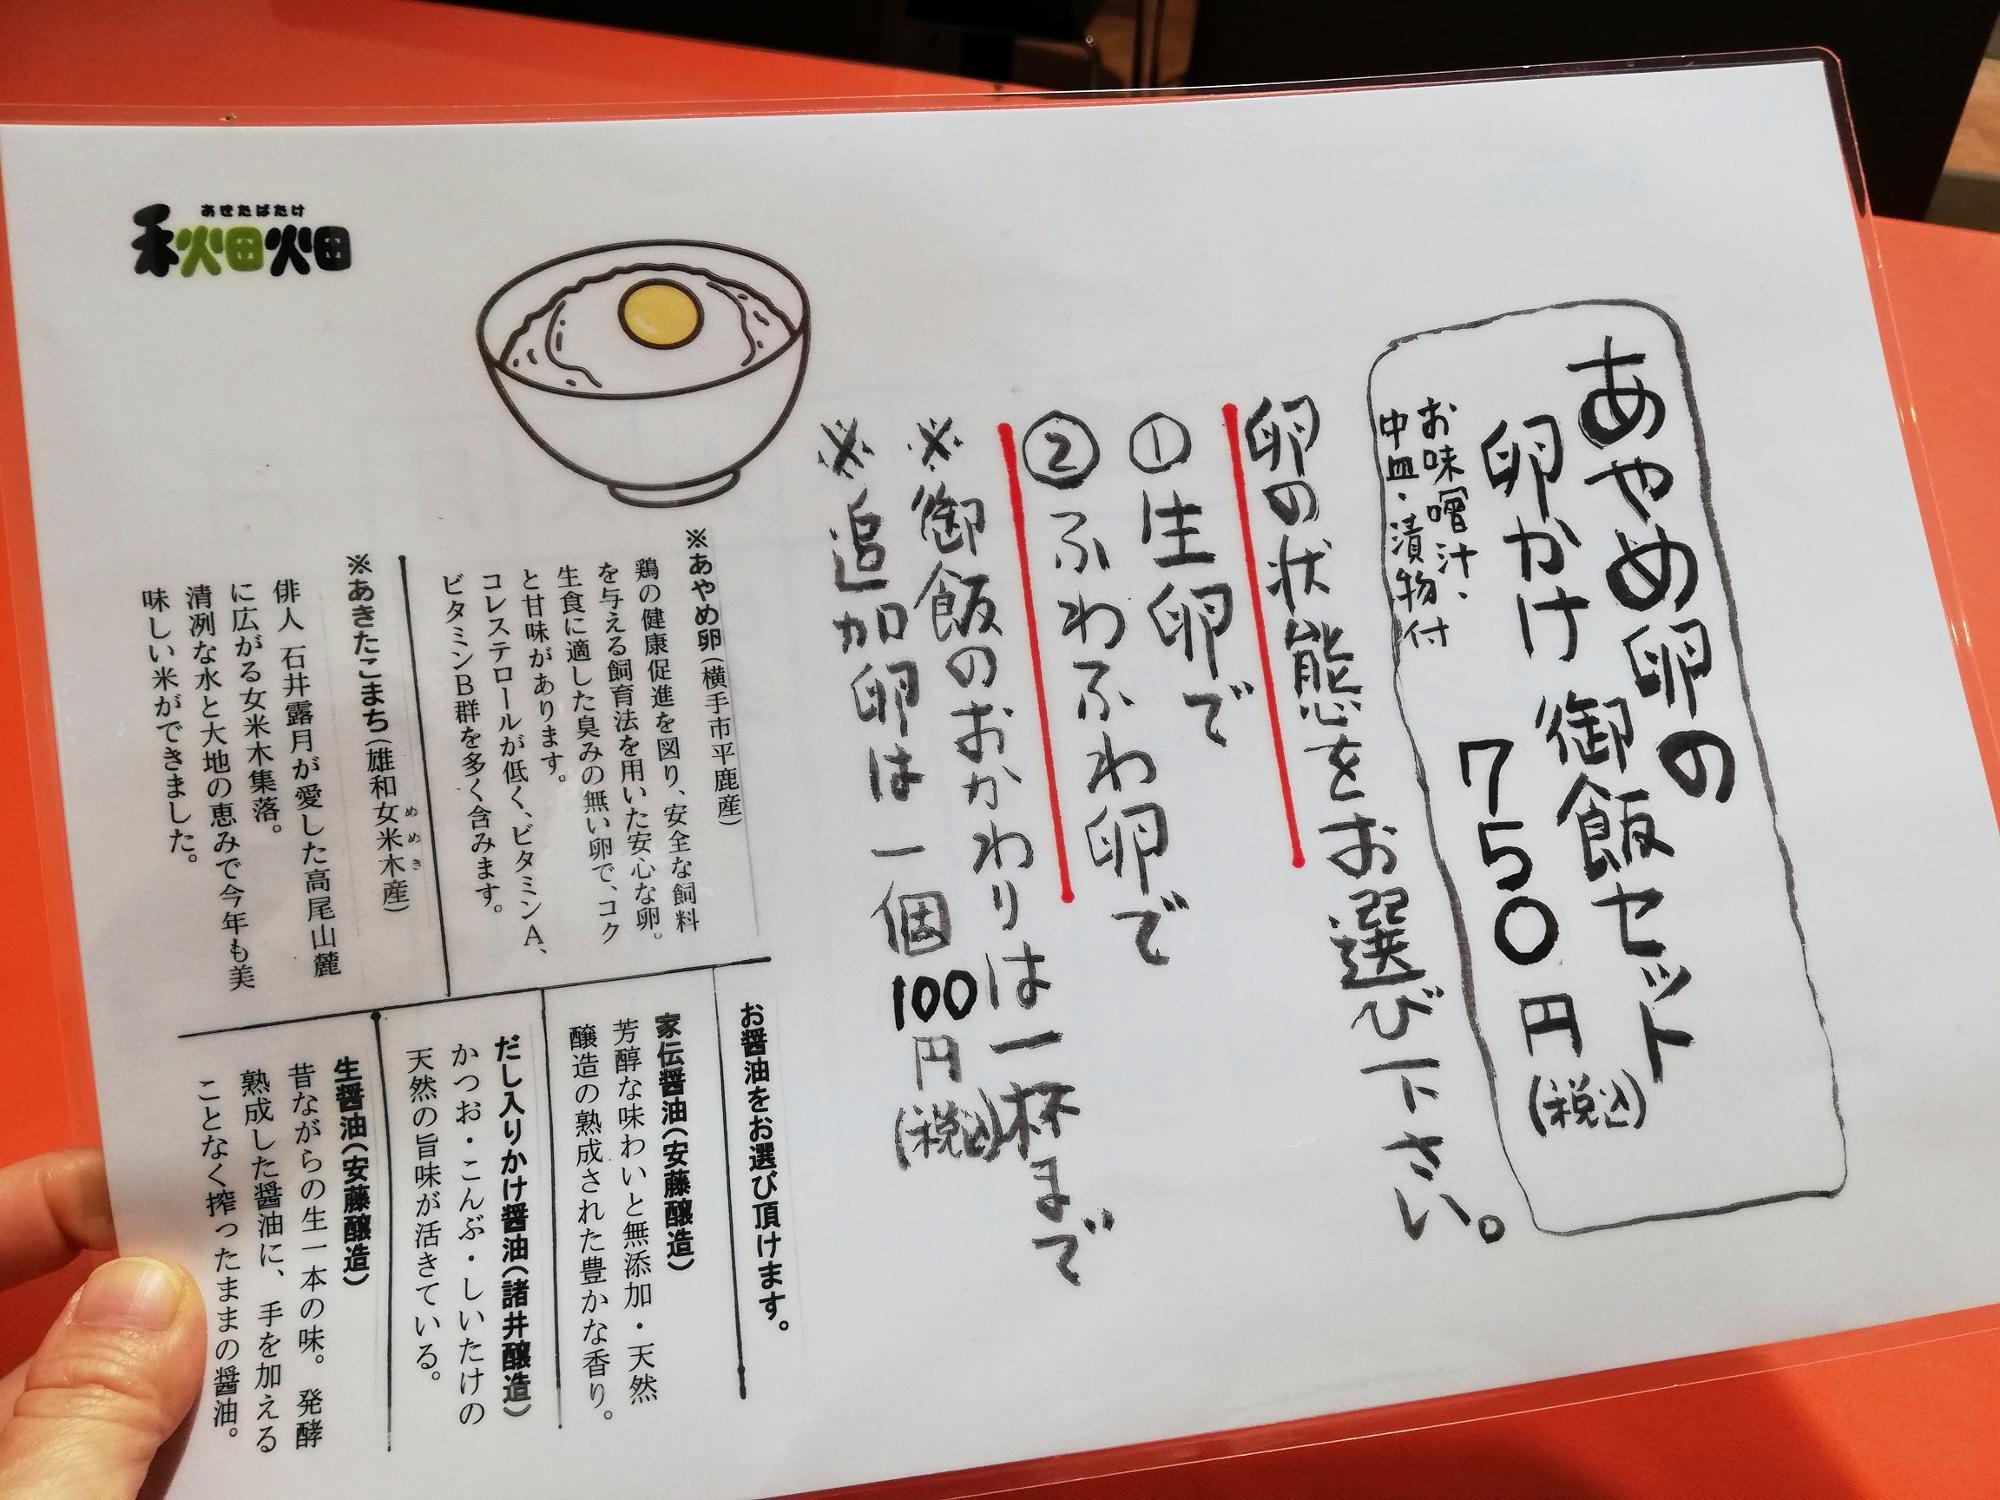 あやめ卵の
卵かけ御飯セット
750円(税込)
お味噌汁・
中皿・漬物付
卵の状態をお選び下さい。
①生卵で
②ふわふわ卵で
※御飯のおかわりは一杯まで
※追加卵は一個100円(税込)
あきたばたけ
秋田畑
※あやめ卵(横手市平鹿産)
鶏の健康促進を図り、安全な飼料
を与える飼育法を用いた安心な卵。
生食に適した臭みの無い卵で、コク
と甘味があります。
コレステロールが低く、ビタミンA、
ビタミンB群を多く含みます。
※あきたこまち(雄和女米木産)
めめき
俳人 石井露月が愛した高尾山麓
に広がる女米木集落。
清冽な水と大地の恵みで今年も美
味しい米ができました。
お醤油をお選び頂けます。
家伝醤油(安藤醸造)
芳醇な味わいと無添加・天然
醸造の熟成された豊かな香り。
だし入りかけ醤油(諸井醸造)
かつお・こんぶ・しいたけの
天然の旨味が活きている。
生醤油(安藤醸造)
昔ながらの生一本の味。発酵
熟成した醤油に、手を加える
ことなく搾ったままの醤油。